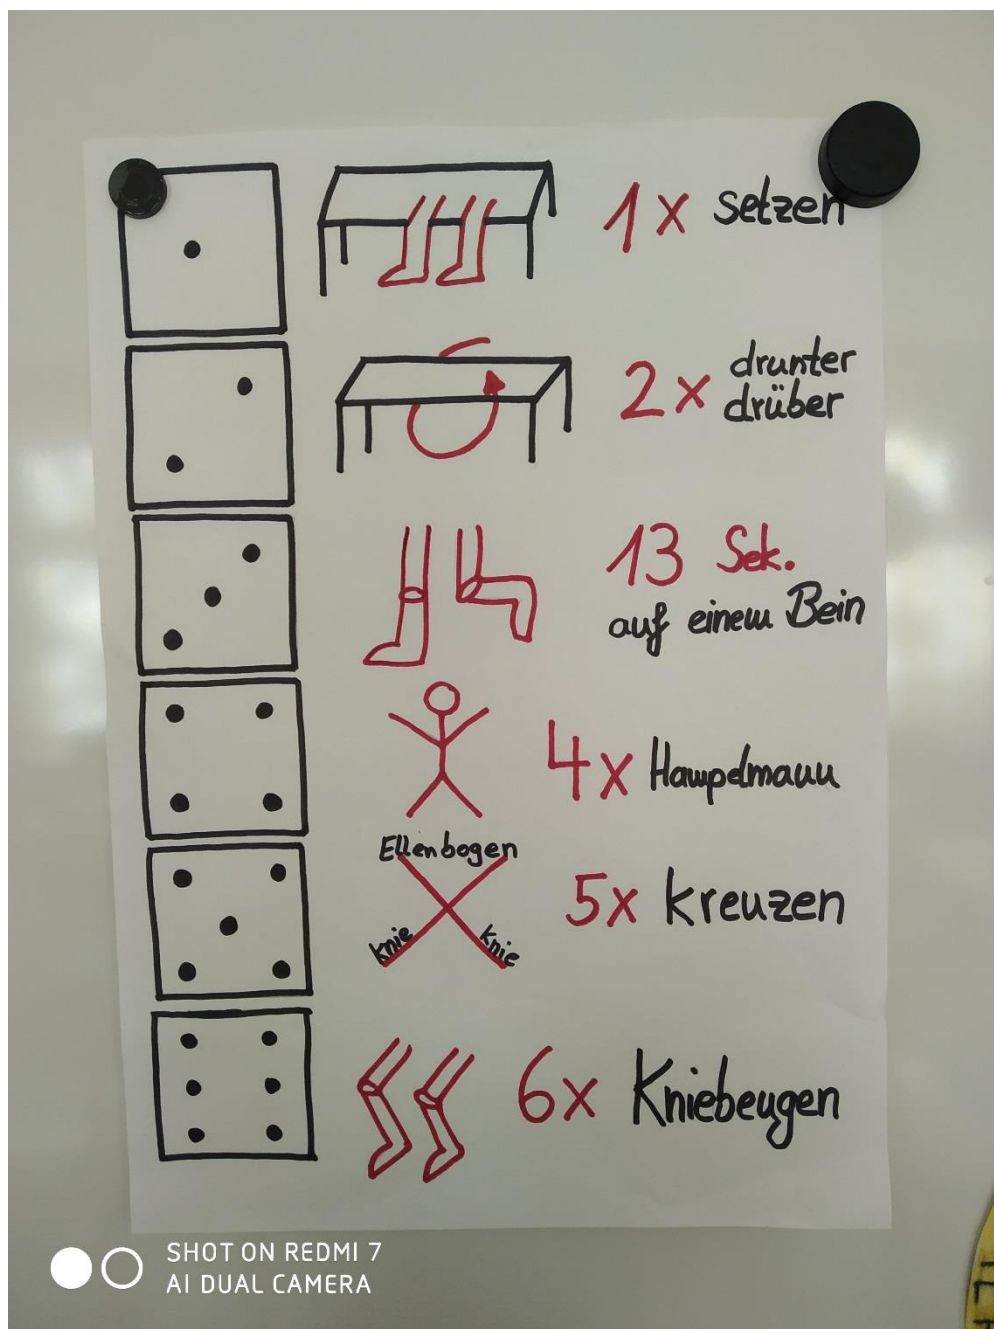 1x setzen
2x drunter
drüber
13 Sek.
auf einem Bein
4x Hampelmann
Ellenbogen
Knie Knie
5x kreuzen
6x Kniebeugen
SHOT ON REDMI 7
AI DUAL CAMERA